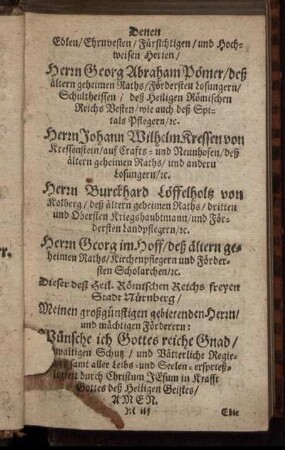 Denen
Edlen/ Ehrnvesten/ Fürsichtigen/ und Hoch-
weisen Herren/
Herrn Georg Abraham Pömer/ deß
ältern geheimen Raths/ Fördersten Losungern/
Schultheissen/ deß Heiligen Römischen
Reichs Vesten/ wie auch deß Spi-
tals Pflegern/ ꝛc.
Herrn Johann Wilhelm Kressen von
Kressenstein/ auf Crafts- und Neunhofen/ deß
ältern geheimen Raths/ und andern
Losungern/ ꝛc.
Herrn Burckhard Löffelholtz von
Kolberg/ deß ältern geheimen Raths/ dritten
und Obersten Kriegshaubtmann/ und För-
dersten Landpflegern/ ꝛc.
Herrn Georg im Hoff/ deß ältern ge-
heimen Raths/ Kirchenpflegern und Förder-
sten Scholarchen/ ꝛc.
Dieser deß Heil. Römischen Reichs freyen
Stadt Nürnberg/
Meinen großgünstigen gebietenden Herrn/
und mächtigen Förderern:
Wünsche ich Gottes reiche Gnad/
waltigen Schutz/ und Vätterliche Regie-
samt aller Leibs- und Seelen-ersprieß-
durch Christum JEsum in Krafft
Gottes deß Heiligen Geistes/
AMEN.
Edle
r.